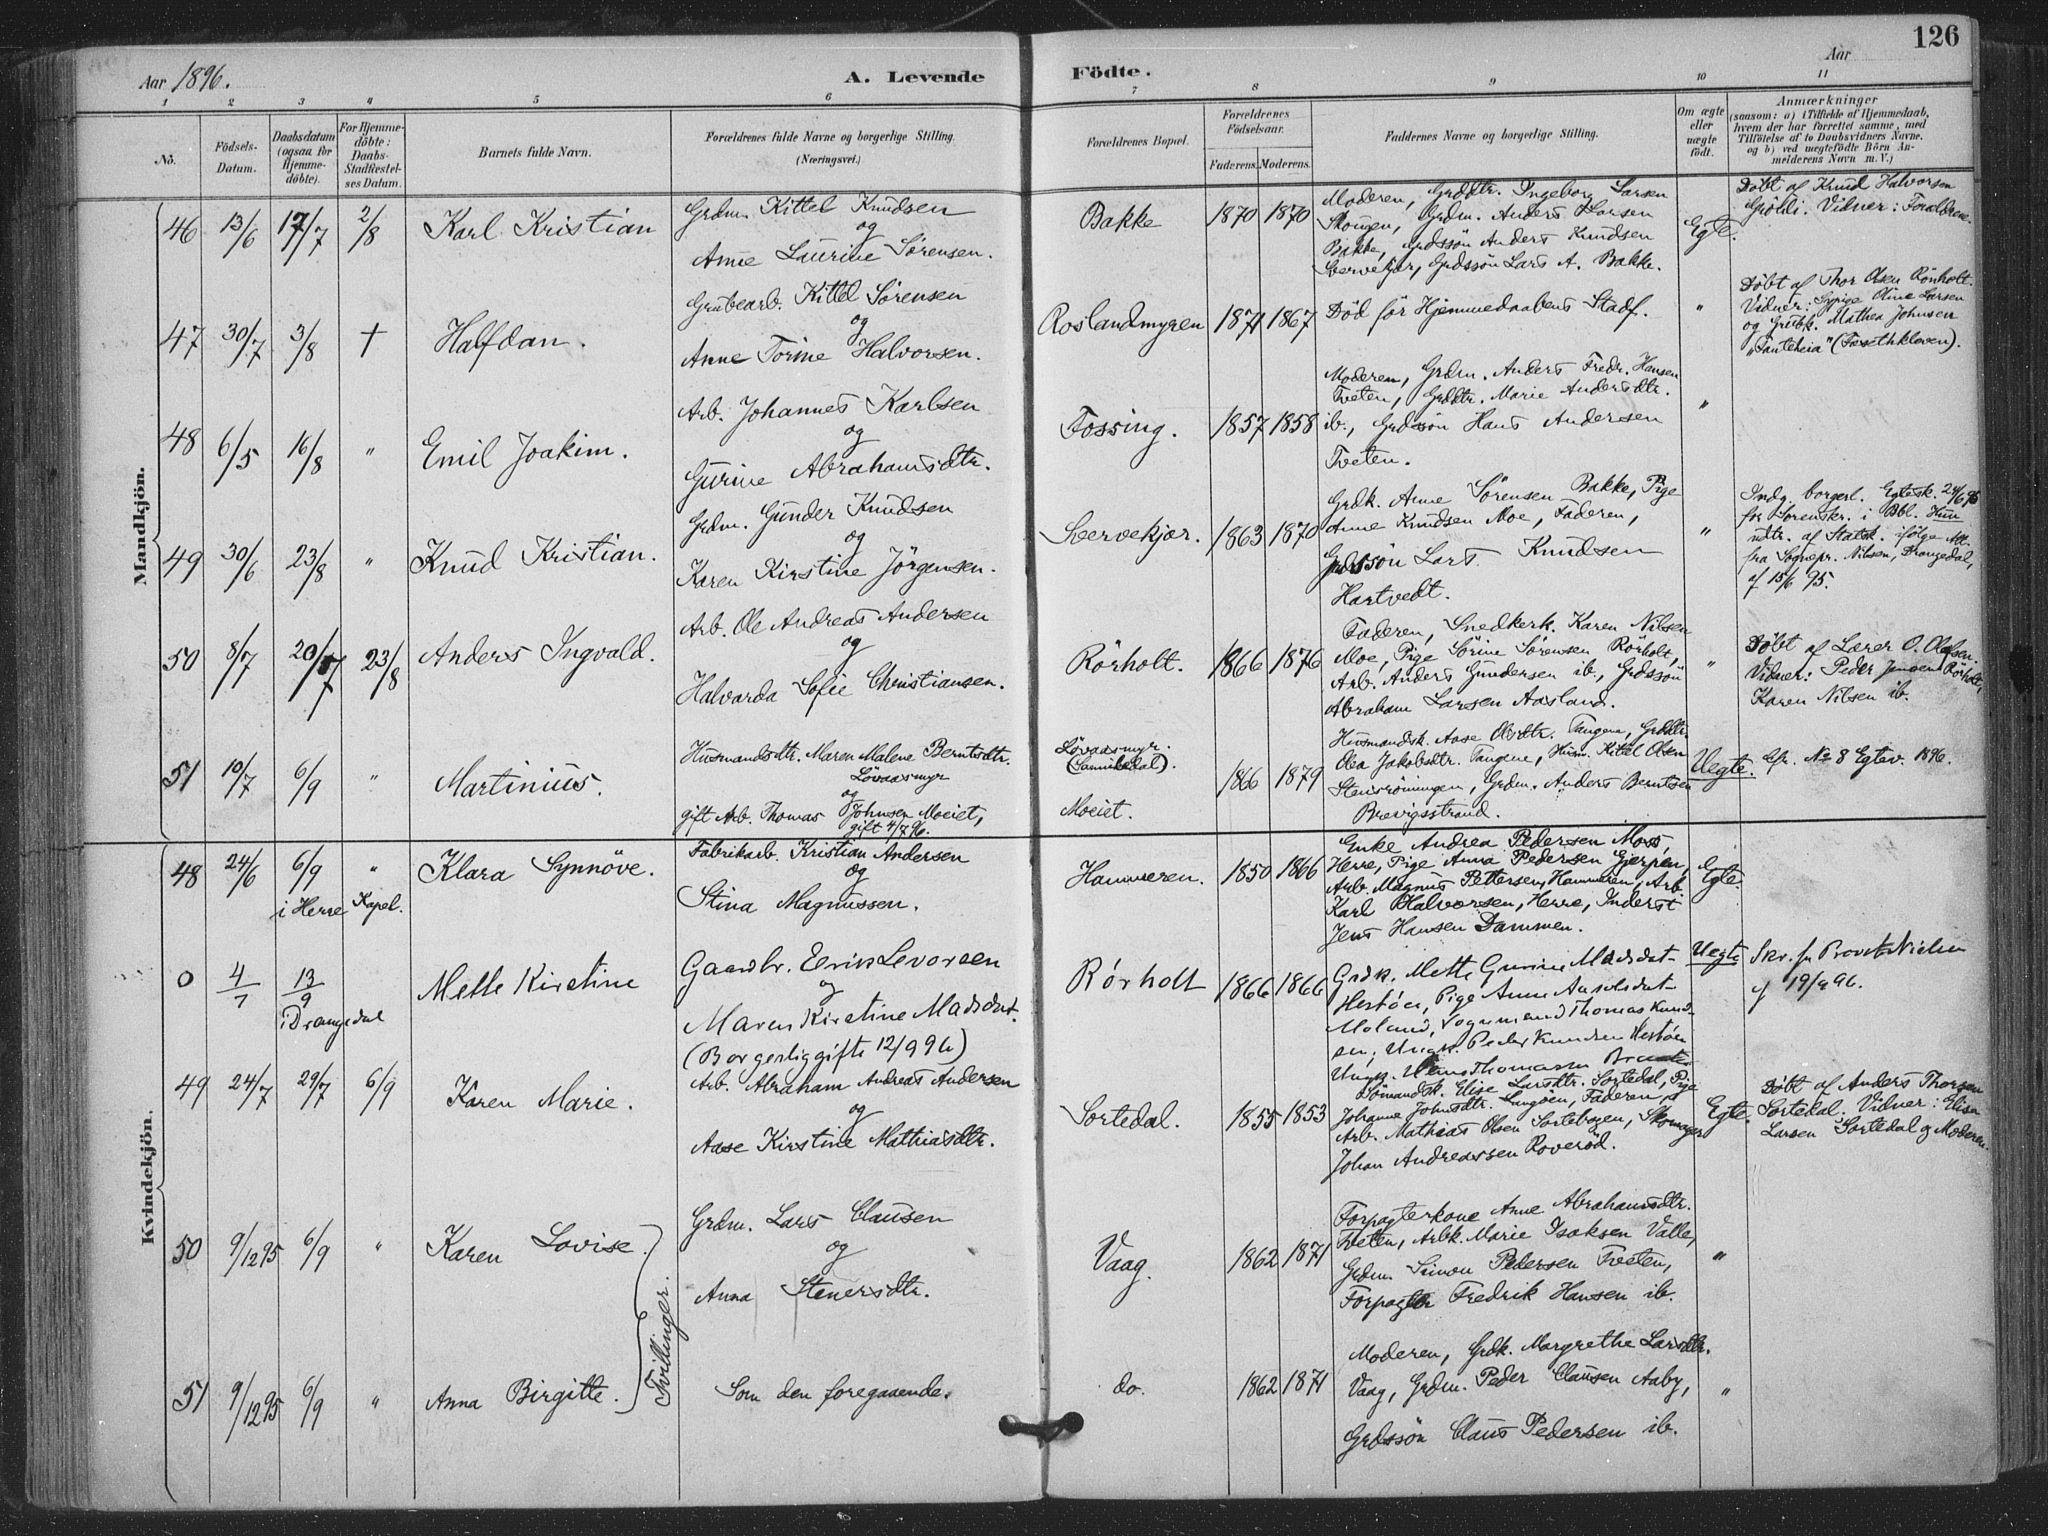 126
Aar 1896.
A. Levende
Födte.
Aar
1 2 3 4 5 6 7 8 9 10 11
No.
Födsels-Datum.
Daabsdatum (ogsaa for Hjemme-döbte).
For Hjemme-döbte: Daabs-Stadfæstel-ses Datum.
Barnets fulde Navn.
Forældrenes fulde Navne og borgerlige Stilling.
(Næringsvei.)
Forældrenes Bopæl.
Forældrenes Födselsaar.
Faderens. Moderens.
Faddernes Navne og borgerlige Stilling.
Om ægte eller uægte födt.
Anmærkninger
(saasom: a) i Tilfælde af Hjemmedaab, hvem der har forrettet samme, med Tilföielse af to Daabsvidners Navne. og b) ved uægtefödte Börn An-melderens Navn m. V.)
Mandkjön.
46 13/6 17/7 2/8 Karl Kristian
Grdm. Kittel Knudsen
og
Anne Laurine Sørensen.
Bakke 1870 1870
Moderen, Grddtr. Ingeborg Larsen
Skougen, Grdm. Anders Larsen
Bakke, Grdssön Anders Knudsen
Særvekjær, Grdssön Lars A. Bakke.
Egte.
Döbt af Knud Halvorsen
Vidner: Forældrene.
47 30/7 3/8 † Halfdan.
Grubearb. Kittel Sørensen
og
Anne Torine Halvorsen.
Roslandmyren 1871 1867
Död för Hjemmedaabens Stadf.
"
Döbt af Thor Olsen Rönholt.
Vidner: Sypige Oline Larsen
og Grubk. Mathea Johnsen
"Tanteheia" (Fosethkleven).
48 6/5 16/8 " Emil Joakim.
Arb. Johannes Karlsen
og
Gurine Abrahamsdtr.
Fossing. 1857 1858
Moderen, Grdm. Anders Fredr. Hansen
Tveten, Grddtr. Marie Andersdtr.
ib., Grdssön Hans Andersen
Tveten.
"
49 30/6 23/8 " Knud Kristian.
Grdm. Gunder Knudsen
og
Karen Kirstine Jörgensen.
Særvekjær. 1863 1870
Grdk. Anne Sörensen Bakke, Pige
Anne Knudsen Moe, Faderen,
Grdssön Lars Knudsen
Hartvedt.
"
Indg. borgerl. Egtesk. 24/6 95
for Sorenskr. i Bbl. Hun
udtr. af Statsk. ifölge Att.
fra Sognepr. Nilsen, Drangedal,
af 15/6 95.
50 8/7 20/7 23/8 Anders Ingvald.
Arb. Ole Andreas Andersen
og
Halvarda Sofie Christiansen.
Rörholt. 1866 1876
Faderen, Snedkerk. Karen Nilsen
Moe, Pige Sörine Sörensen Rörholt,
Arb. Anders Gundersen ib., Grdssön
Abraham Larsen Aasland.
"
Döbt af Lærer O. Olafsen.
Vidner: Peder Jensen Rörholt,
Karen Nilsen ib.
51 10/7 6/9 " Martinius.
Husmandsdtr. Maren Malene Berntsdtr.
Lövaasmyr
og
gift Arb. Thomas Johnsen Moeiet,
gift 4/7 96.
Lövaasmyr.
(Sannikedal).
Moeiet.
1866 1879
Husmandsk. Aase Olsdtr. Tangene, Grddtr.
Olea Jakobsdtr. Tangene, Husm. Kittel Olsen
Stensröningen, Grdm. Anders Berntsen
Brevigsstrand.
Uegte.
Cfr. No 8 Egtev. 1896.
Kvindekjön.
48 24/6 6/9 " Klara Synnöve.
i Herre Kapel.
Fabrikarb. Kristian Andersen
og
Stina Magnussen.
Hammeren. 1850 1866
Enke Andrea Pedersen Moss,
Herre, Pige Anna Pedersen Gjerpen,
Arb. Magnus Pettersen, Hammeren, Arb.
Karl Halvorsen, Herre, Inderst
Jens Hansen Dammen.
Egte.
0 4/7 13/9 Mette Kirstine
i Drangedal
Gaardbr. Eerik Levorsen
og
Maren Kirstine Madsdat.
(Borgerlig gifte 12/9 96)
Rørholt 1866 1866
Grdk. Mette Gurine Madsdat-
Hestöen, Pige Anne Aasolsdat-
Moland, Sognemand Thomas Knud-
sen, Ungk. Peder Knudsen Hestöen
Ungk. Thomassen
Uegte
Skr. fr Provst Nielsen
af 19/9 96.
49 24/7 29/7 6/9 Karen Marie.
Arb. Abraham Andreas Andersen
og
Aase Kirstine Mathiasdtr.
Sortedal. 1855 1853
Sömandsk. Elise Larsdtr. Sortedal, Pige
Johanne Johnsdtr. Langöen, Faderen,
Arb. Mathias Olsen Sortebogen, Skomager
Johan Andreassen Roveröd.
Egte.
Döbt af Anders Thorsen
Sortedal. Vidner: Elise
Larsen Sortedal og Moderen.
50 9/12 95 6/9 " Karen Lovise.
Tvillinger.
Grdm. Lars Clausen
og
Anna Stenersdtr.
Vaag. 1862 1871
Forpagterkone Anne Abrahamsdtr.
Tveten, Arbk. Marie Isaksen Valle,
Grdm. Simon Pedersen Tveten,
Forpagter Fredrik Hansen ib.
"
51 9/12 95 6/9 " Anna Birgitte.
Som den foregaaende.
do. 1862 1871
Moderen, Grdk. Margrethe Larsdtr.
Vaag, Grdm. Peder Clausen Aaby,
Grdssön Claus Pedersen ib.
"